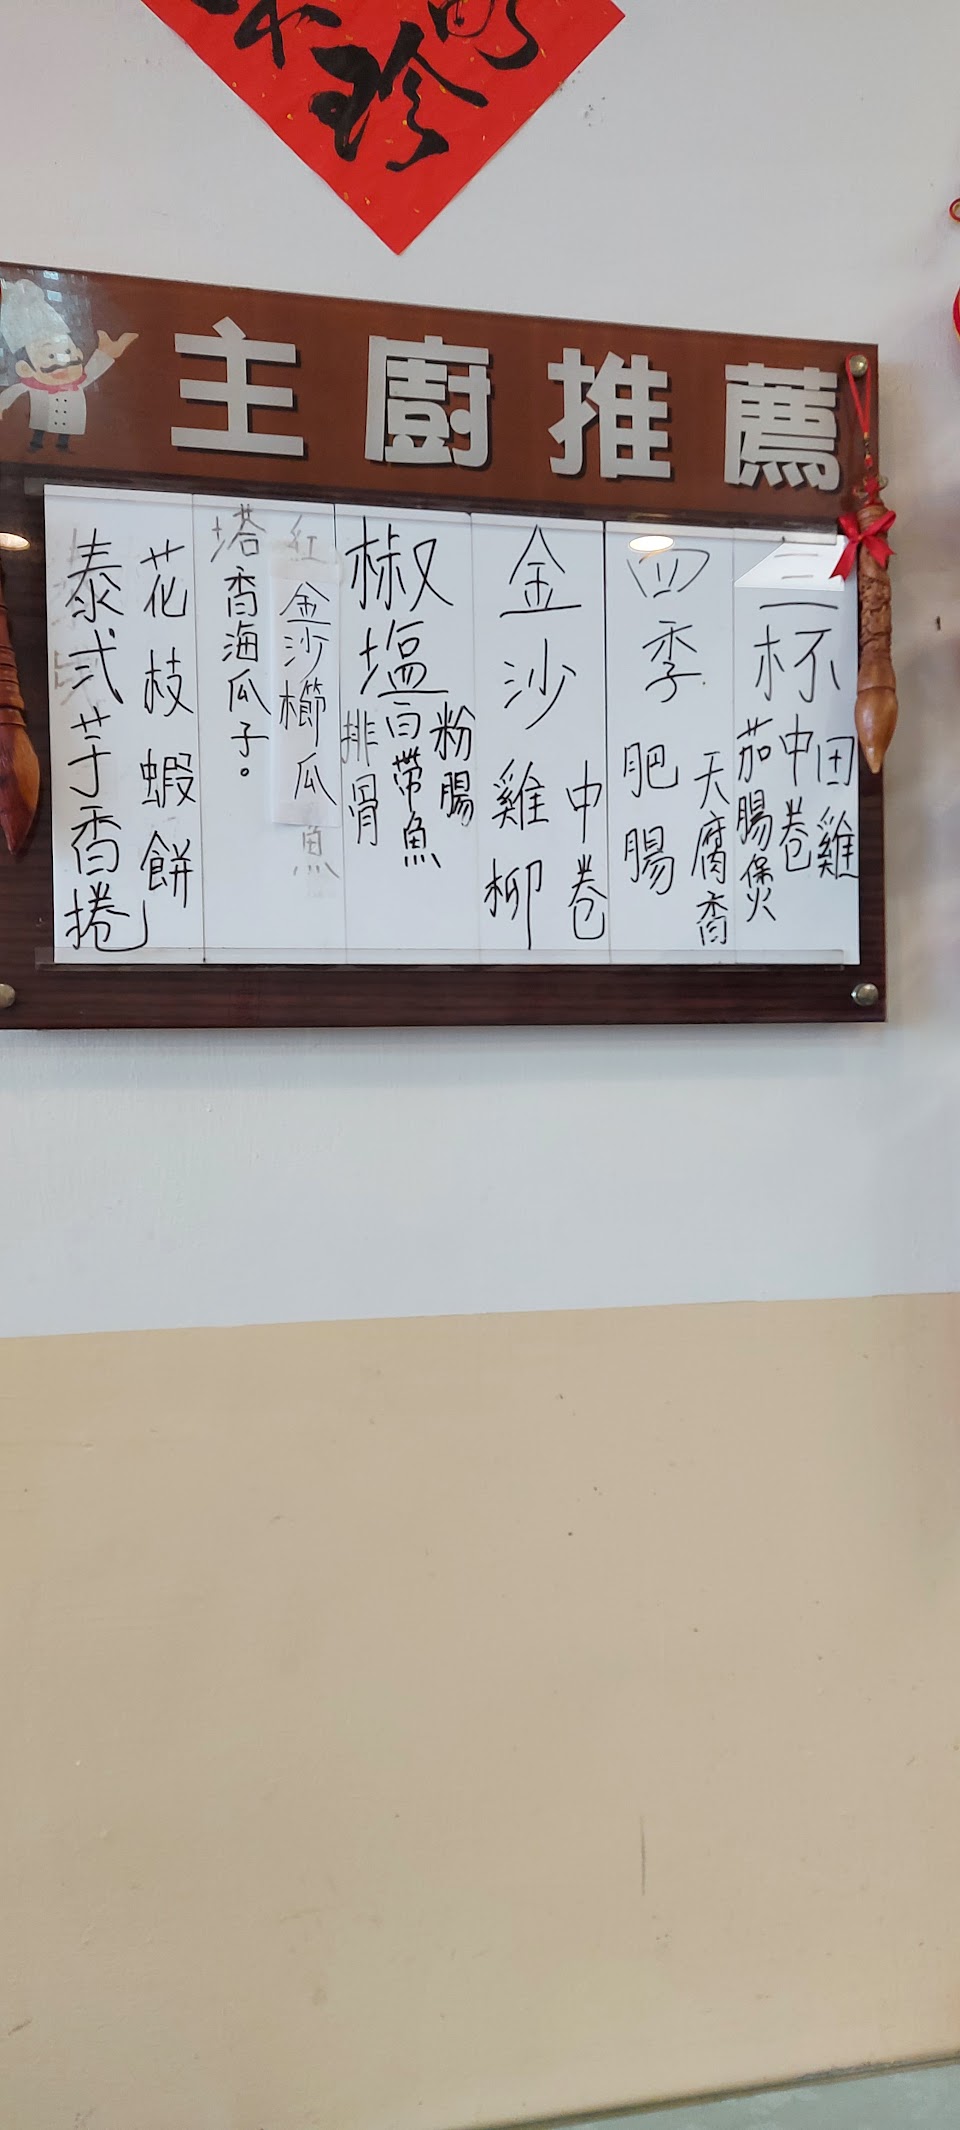 珍
主廚推薦
三杯
田雞
中卷
茄腸煲
四季
天腐香
肥腸
金沙
中卷
雞柳
椒塩
粉腸
白帶魚
排骨
紅
金沙櫛瓜
魚
塔香海瓜子。
花枝蝦餅
泰式芋香捲